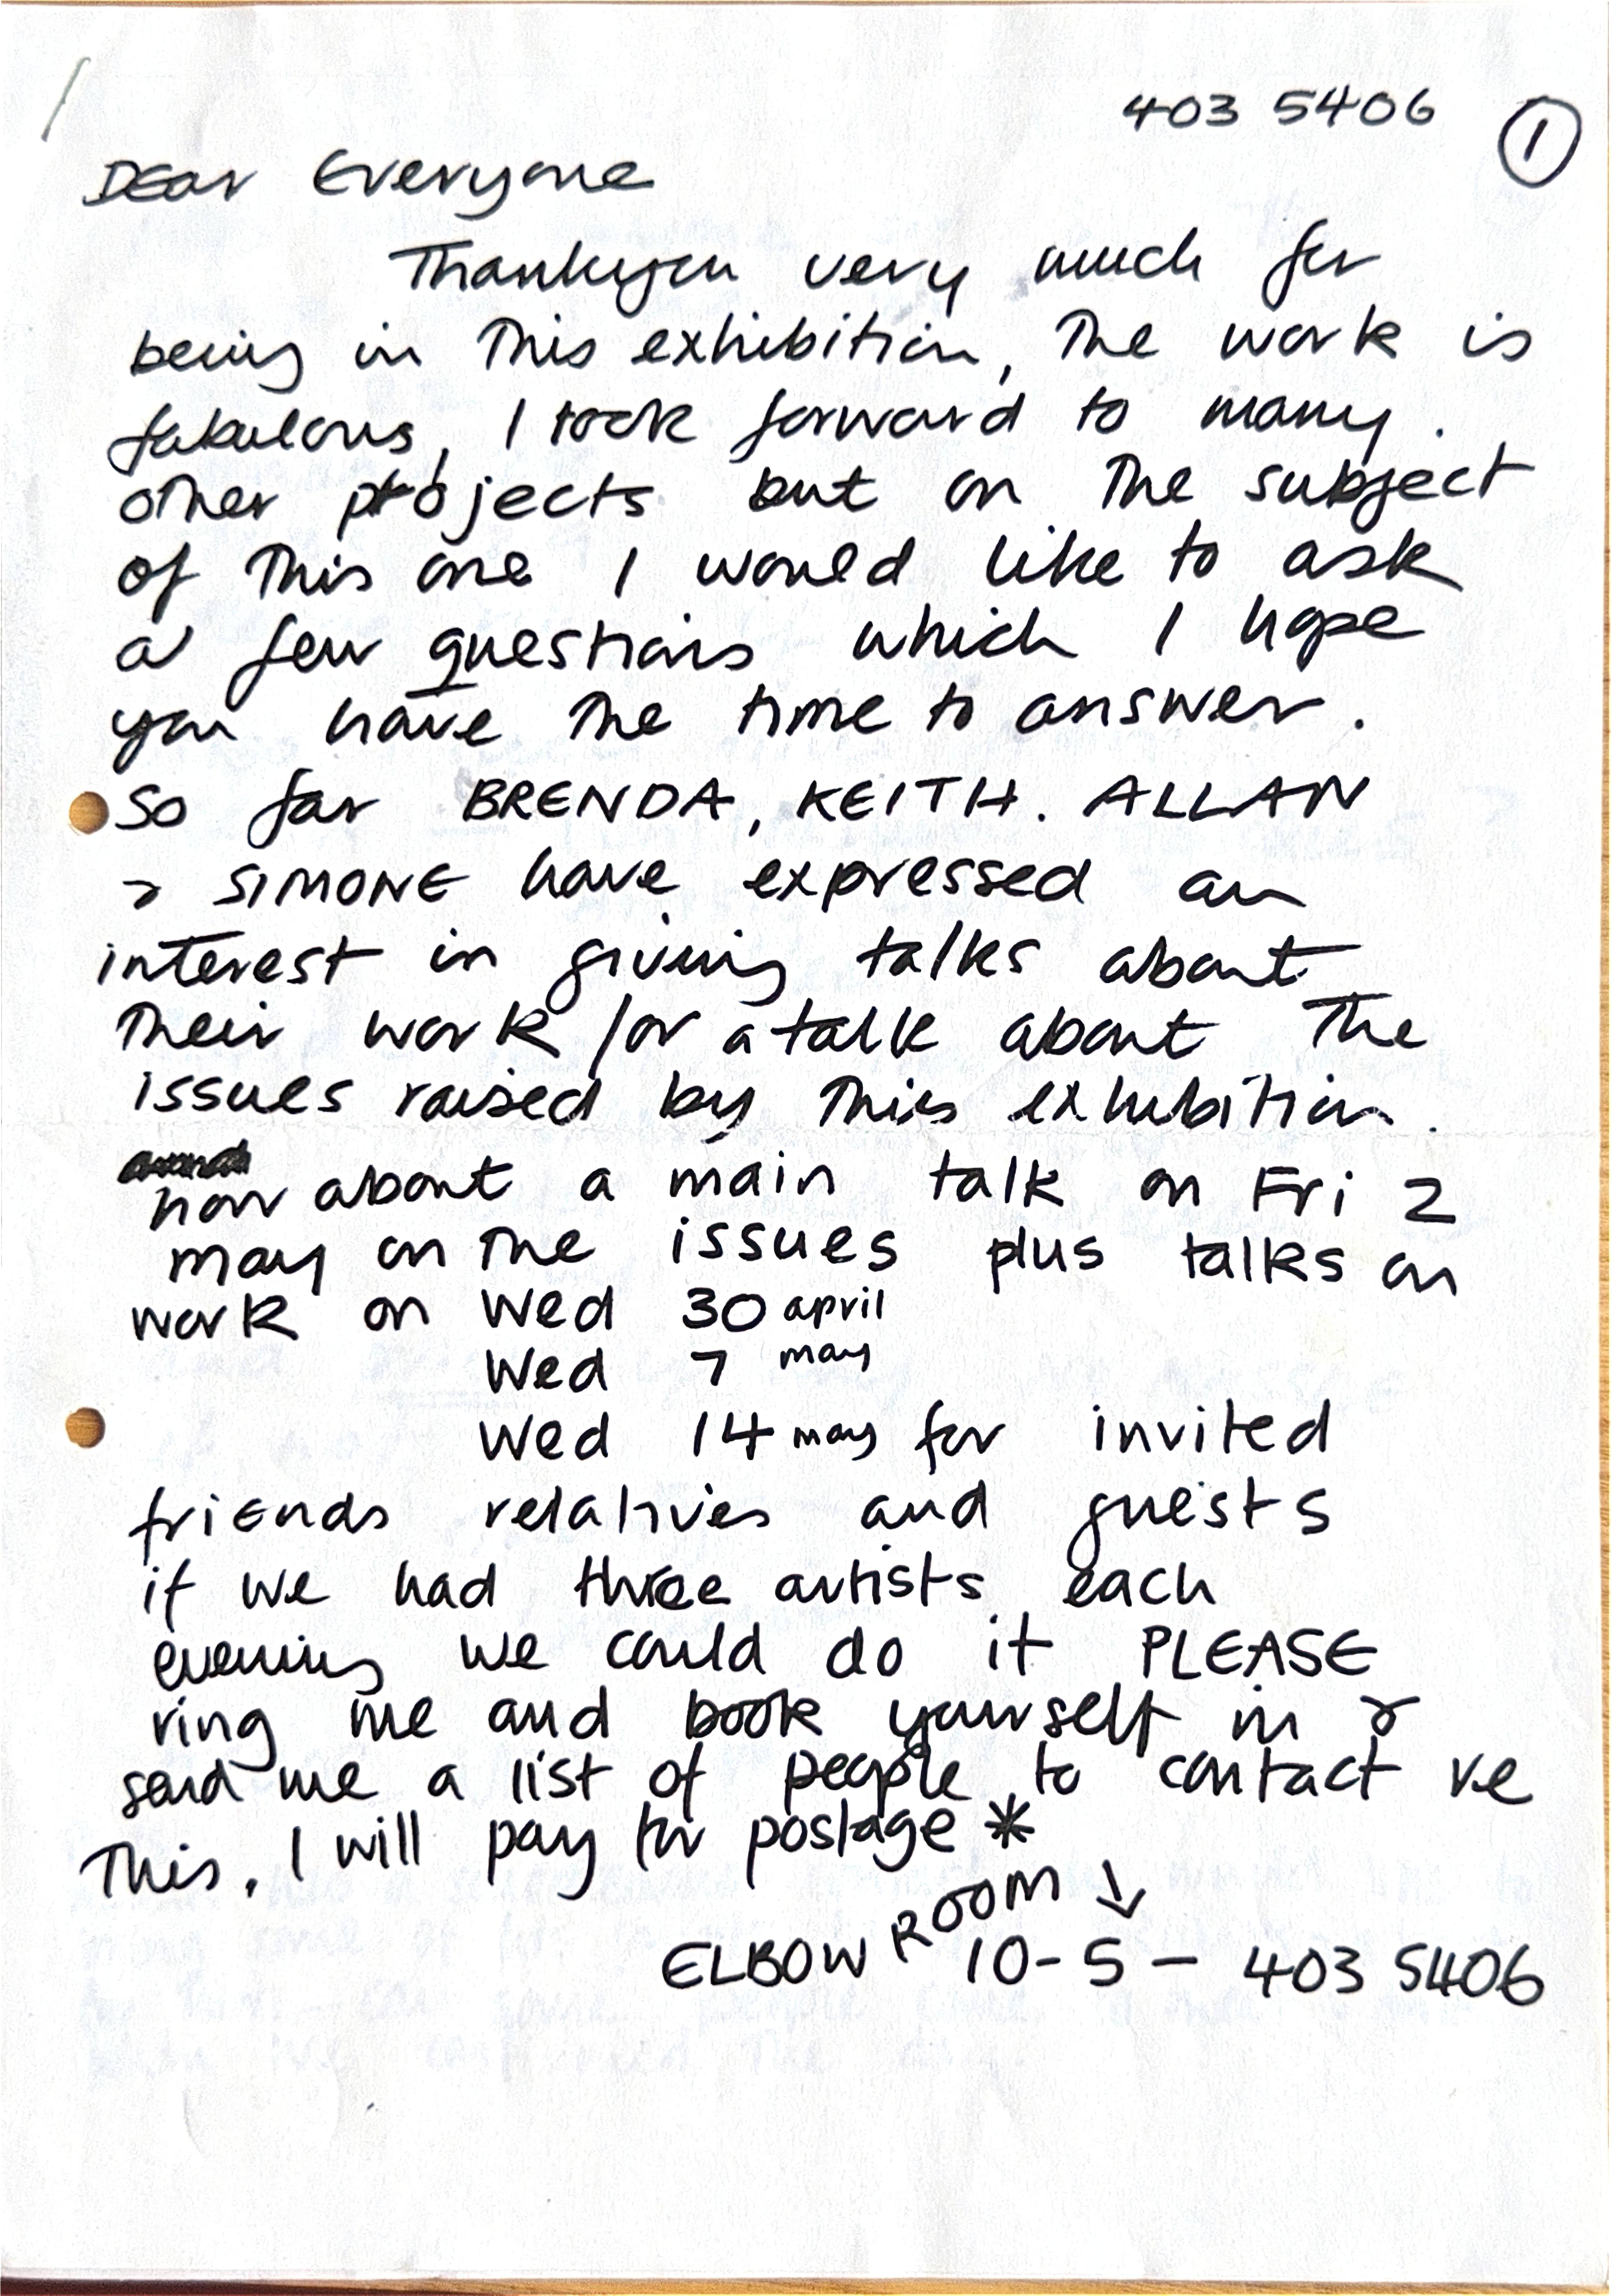 403 5406 ①
Dear Everyone
Thankyou very much for
being in this exhibition, the work is
fabulous, I look forward to many
other projects but on the subject
of this one I would like to ask
a few questions which I hope
you have the time to answer.
So far BRENDA, KEITH. ALLAN
& SIMONE have expressed an
interest in giving talks about
their work /or a talk about the
issues raised by this exhibition.
how about a main talk on Fri 2
may on the issues plus talks on
work on Wed 30 april
Wed 7 may
Wed 14 may for invited
friends relatives and guests
if we had three artists each
evening we could do it PLEASE
ring me and book yourself in &
send me a list of people to contact re
This. I will pay for postage *
ELBOW ROOM ↓
10-5 - 403 5406